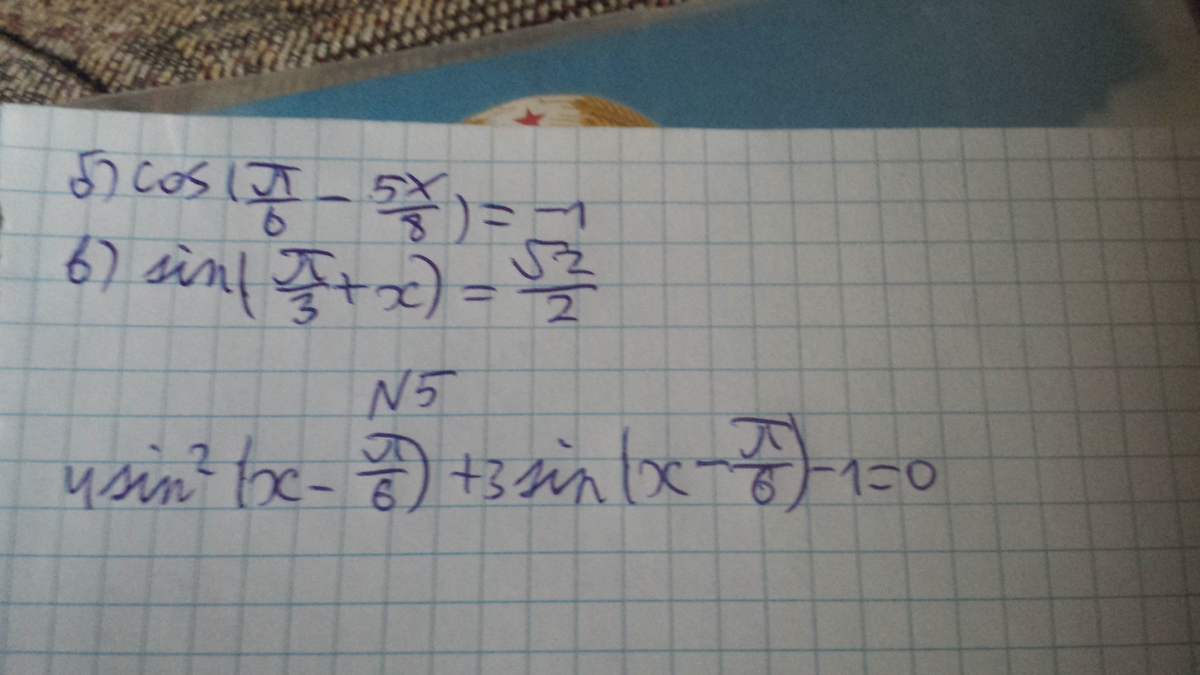 б) cos(π/6 - 5x/8) = -1
в) sin(π/3 + x) = √2/2
N5
4sin²(x - π/6) + 3sin(x - π/6) - 1 = 0